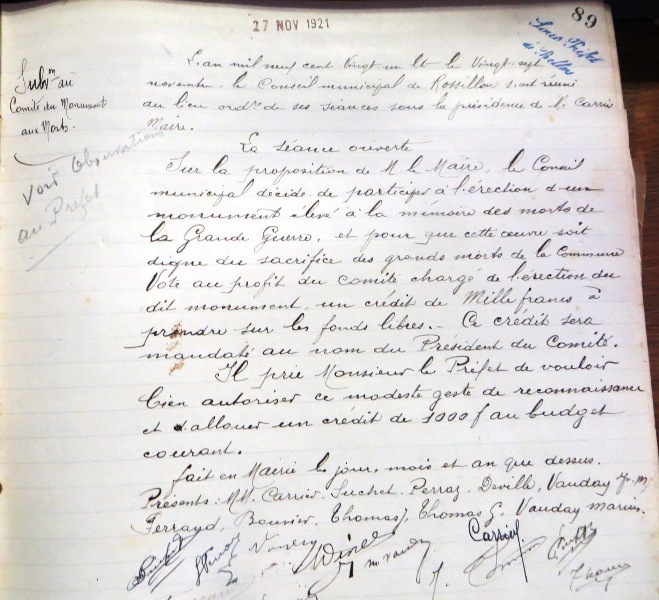 27 NOV 1921
89
Sous Préfet
de Belley
Subv.on au
Comité du Monument
aux Morts.
Voir Observations
au Préfet
L'an mil neuf cent vingt un et le vingt sept
novembre, le Conseil municipal de Rossillon s'est réuni
au lieu ord.re de ses séances sous la présidence de M. Carrier
Maire.
La séance ouverte
Sur la proposition de M. le Maire, le Conseil
municipal décide de participer à l'érection d'un
monument élevé à la mémoire des morts de
la Grande Guerre, et pour que cette œuvre soit
digne du sacrifice des grands morts de la Commune
Vote au profit du Comité chargé de l'érection du
dit monument, un crédit de Mille francs à
prendre sur les fonds libres. - Ce crédit sera
mandaté au nom du Président du Comité.
Il prie Monsieur le Préfet de vouloir
bien autoriser ce modeste geste de reconnaissance
et d'allouer un crédit de 1000 f au budget
courant.
fait en Mairie le jour, mois et an que dessus.
Présents : MM. Carrier, Suchet, Perraz, Deville, Vauday
Ferraud, Bouvier, Thomas J, Thomas G. Vauday Marius.
Carrier